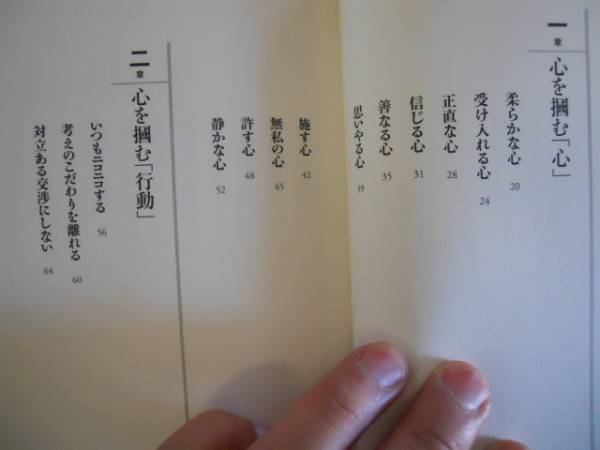 一章 心を掴む「心」
柔らかな心 20
受け入れる心 24
正直な心 28
信じる心 31
善なる心 35
思いやる心 39
施す心 42
無私の心 45
許す心 48
静かな心 52
二章 心を掴む「行動」
いつもニコニコする 56
考えのこだわりを離れる 60
対立ある交渉にしない 64